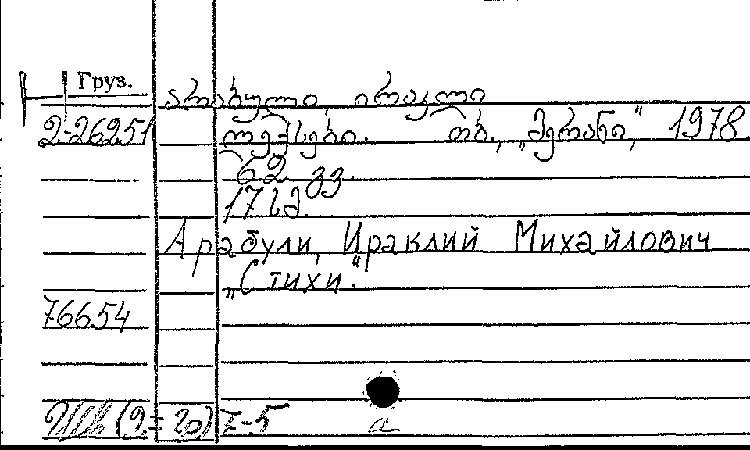 Груз.
არაბული, ირაკლი
2-26251 ლექსები. თბ., „მერანი,“ 1978
62 გვ.
17 სმ.
Арабули, Ираклий Михайлович
„Стихи.“
76654